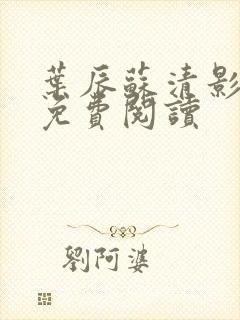 葉辰蘇清影
免費閱讀
劉阿婆